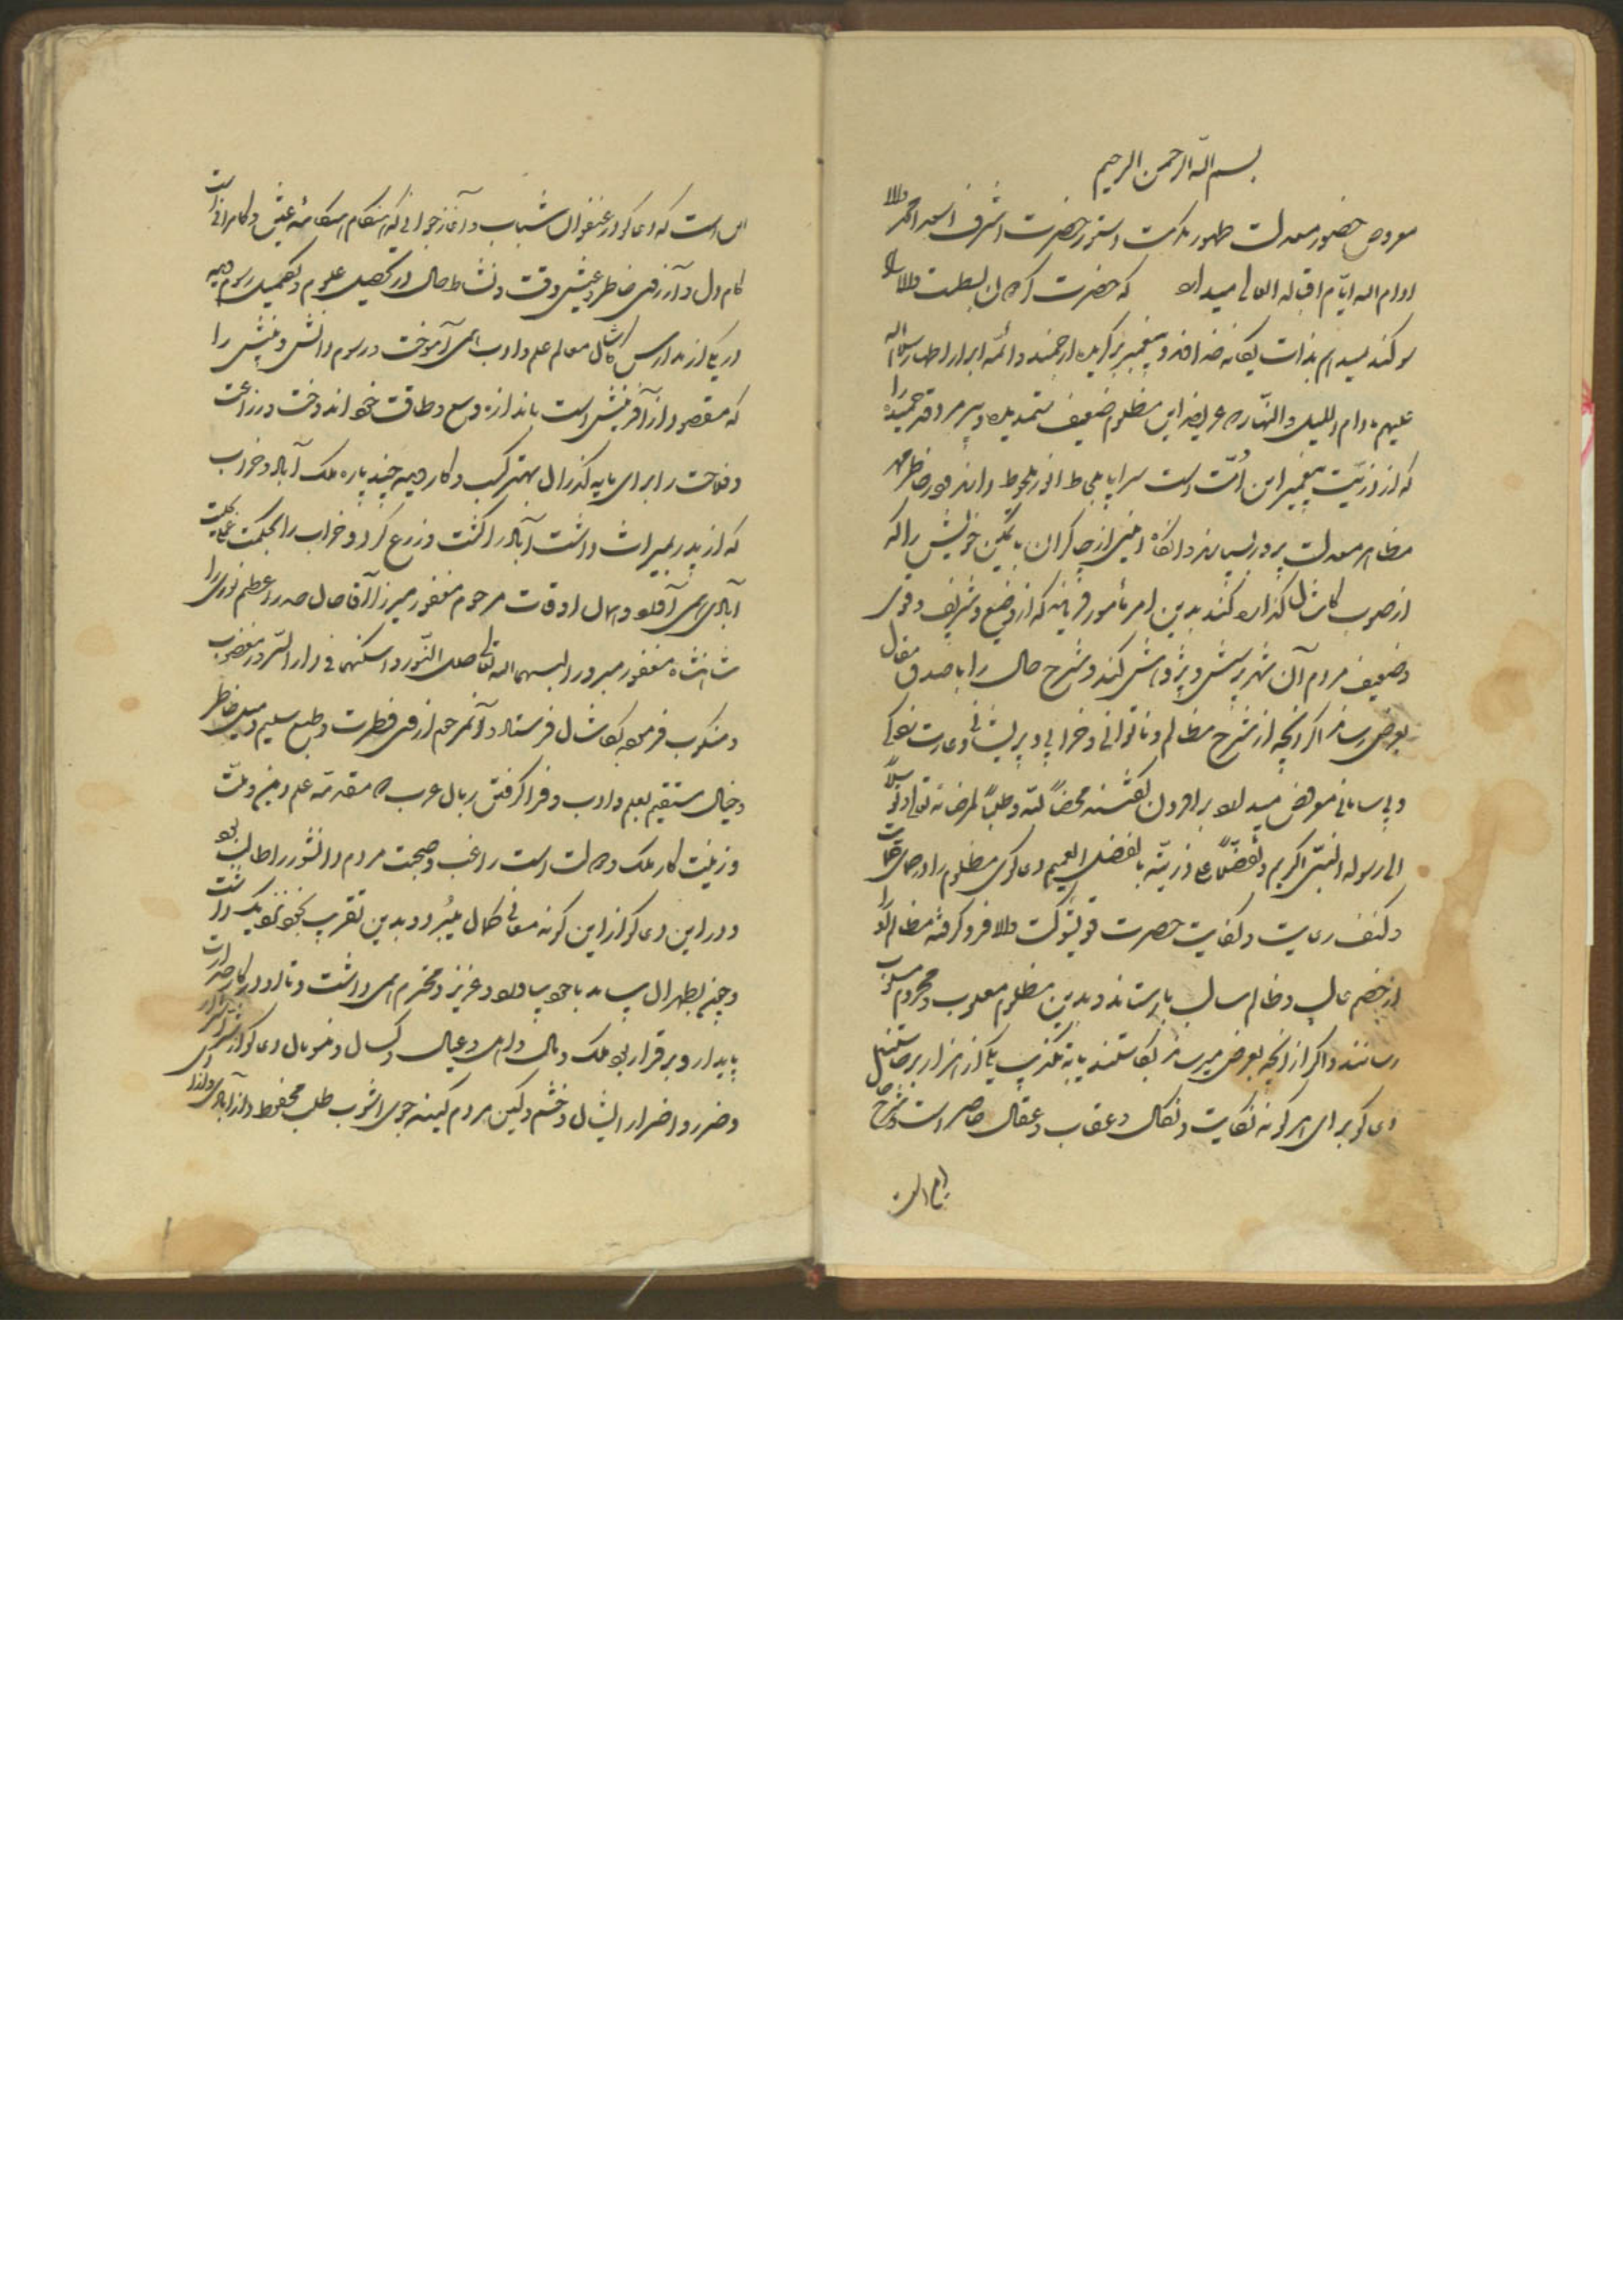 بسم الله الرحمن الرحیم
معروض حضور معدلت ظهور بندگان دستور حضرت اشرف اسعد امجد والا
ادام الله ایام اقباله العالی میدارد که حضرت
سوگند میدهم بذات یگانه خداوند و پیغمبر برگزیده ارجمند و ائمه ابرار اطهار سلام الله
علیهم مادام اللیل و النهار که عریضه این مظلوم ضعیف ستمدیده و پیرمرد قد خمیده را
که از ذریت پیغمبر این امت است سراپا بلحاظ انور ملحوظ دارند و در خاطر مهر
مظاهر معدلت پرور بسپارند و آنگاه امینی از چاکران با تمکین خویش را که
از صوب کاشان گذاره کند بدین امر مأمور فرمایند که از وضیع و شریف و قوی
و ضعیف مردم آن شهر پرسش و پژوهش کند و شرح حال را با صدق مقال
بعرض رساند اگر آنچه از شرح مظالم و ناتوانی و خرابی و پریشانی و غارت زدگی
و بی سامانی معروض میدارد برافزون گفتند محضاً لله و طلباً لمرضاته تعالی و توسلاً
الی رسوله النبی الکریم و تفضلاً علی ذریته بالفضل العمیم دعاگوی مظلوم را در حمای حمایت
و کنف رعایت و کفایت حضرت قویشوکت والا فرو گرفته مظالم او را
از خصم غالب و ظالم سالب بازستانند و بدین مظلوم مغلوب و محروم مسلوب
رسانند و اگر از آنچه بعرض میرساند بکاستند یا بتکذیب یکی از هزار برخاستند
دعاگو برای هرگونه نکایت و نکال و عقاب و عقال حاضر است و شرح حال
این است
این است که دعاگو در عنفوان شباب و آغاز جوانی که هنگام هنگامه عیش و کامرانی است
کام دل و آرزوی خاطر و عیش وقت و نشاط حال در تحصیل علوم و تکمیل رسوم دیده
در یکی از مدارس کاشان معالم علم و ادب همی آموخت و رسوم دانش و بینش را
که مقصود از آفرینش است باندازه وسع و طاقت خود اندوخت و زراعت
و فلاحت را برای مایه گذران بهتر کسب و کار دیده چند پاره ملک آباد و خراب
که از پدر بمیراث داشت آباد را کشت و زرع کرد و خراب را بحکمت عملیت
آبادی همی افکند و همان اوقات مرحوم مغفور میرزا آقا خان صدر اعظم نوری را
شاهنشاه مغفور مبرور البسهما الله تعالی حلل النور و اسکنهما فی دار السرور مغضوب
و منکوب فرموده بکاشان فرستاد و آنمرحوم از روی فطرت و طبع سلیم و میل خاطر
و خیال مستقیم بعلم و ادب و فرا گرفتن زبان عرب که مقدمه علم دین و ملت
و زینت کار ملک و دولت است راغب و صحبت مردم دانشور را طالب بود
و در این دعاگو از این گونه معانی گمان میبرد و بدین تقرب بخود نزدیک داشت
و چند بطهران بیامد با خود بیاورد و عزیز و محترم همی داشت و تا او در کار صدارت
پایدار و برقرار بود ملک و مال و اهل و عیال و کسان و منوبان دعاگو از شر اشرار
و ضرر و اضرار ایشان و خشم و کین مردم کینه جوی آشوب طلب محفوظ و از آبادی